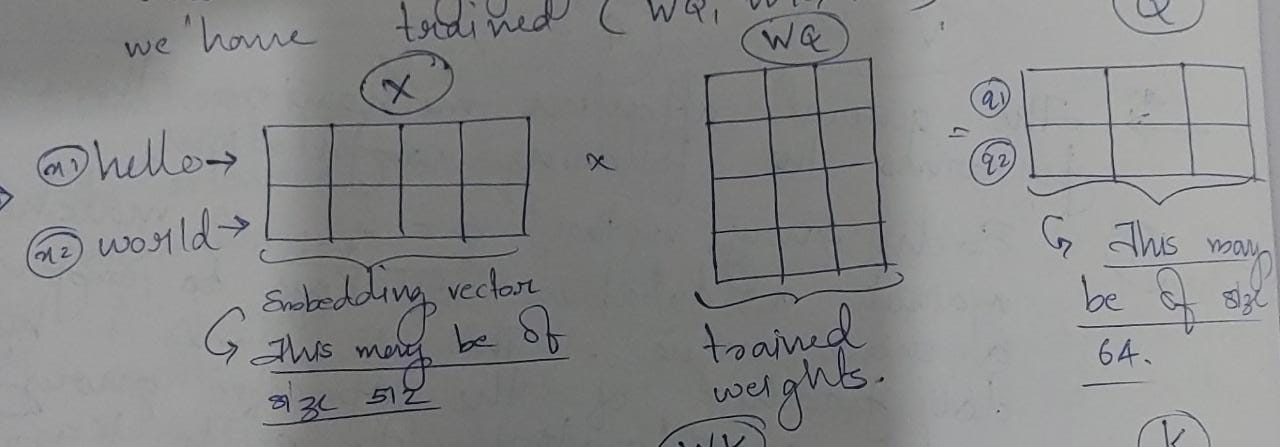 we have trained ( WQ,
Q
X
WQ
x1 hello →
x2 world →
x
=
q1
q2
Embedding vector
This may be of
size 512
trained
weights.
This may
be of size
64.
WK
K